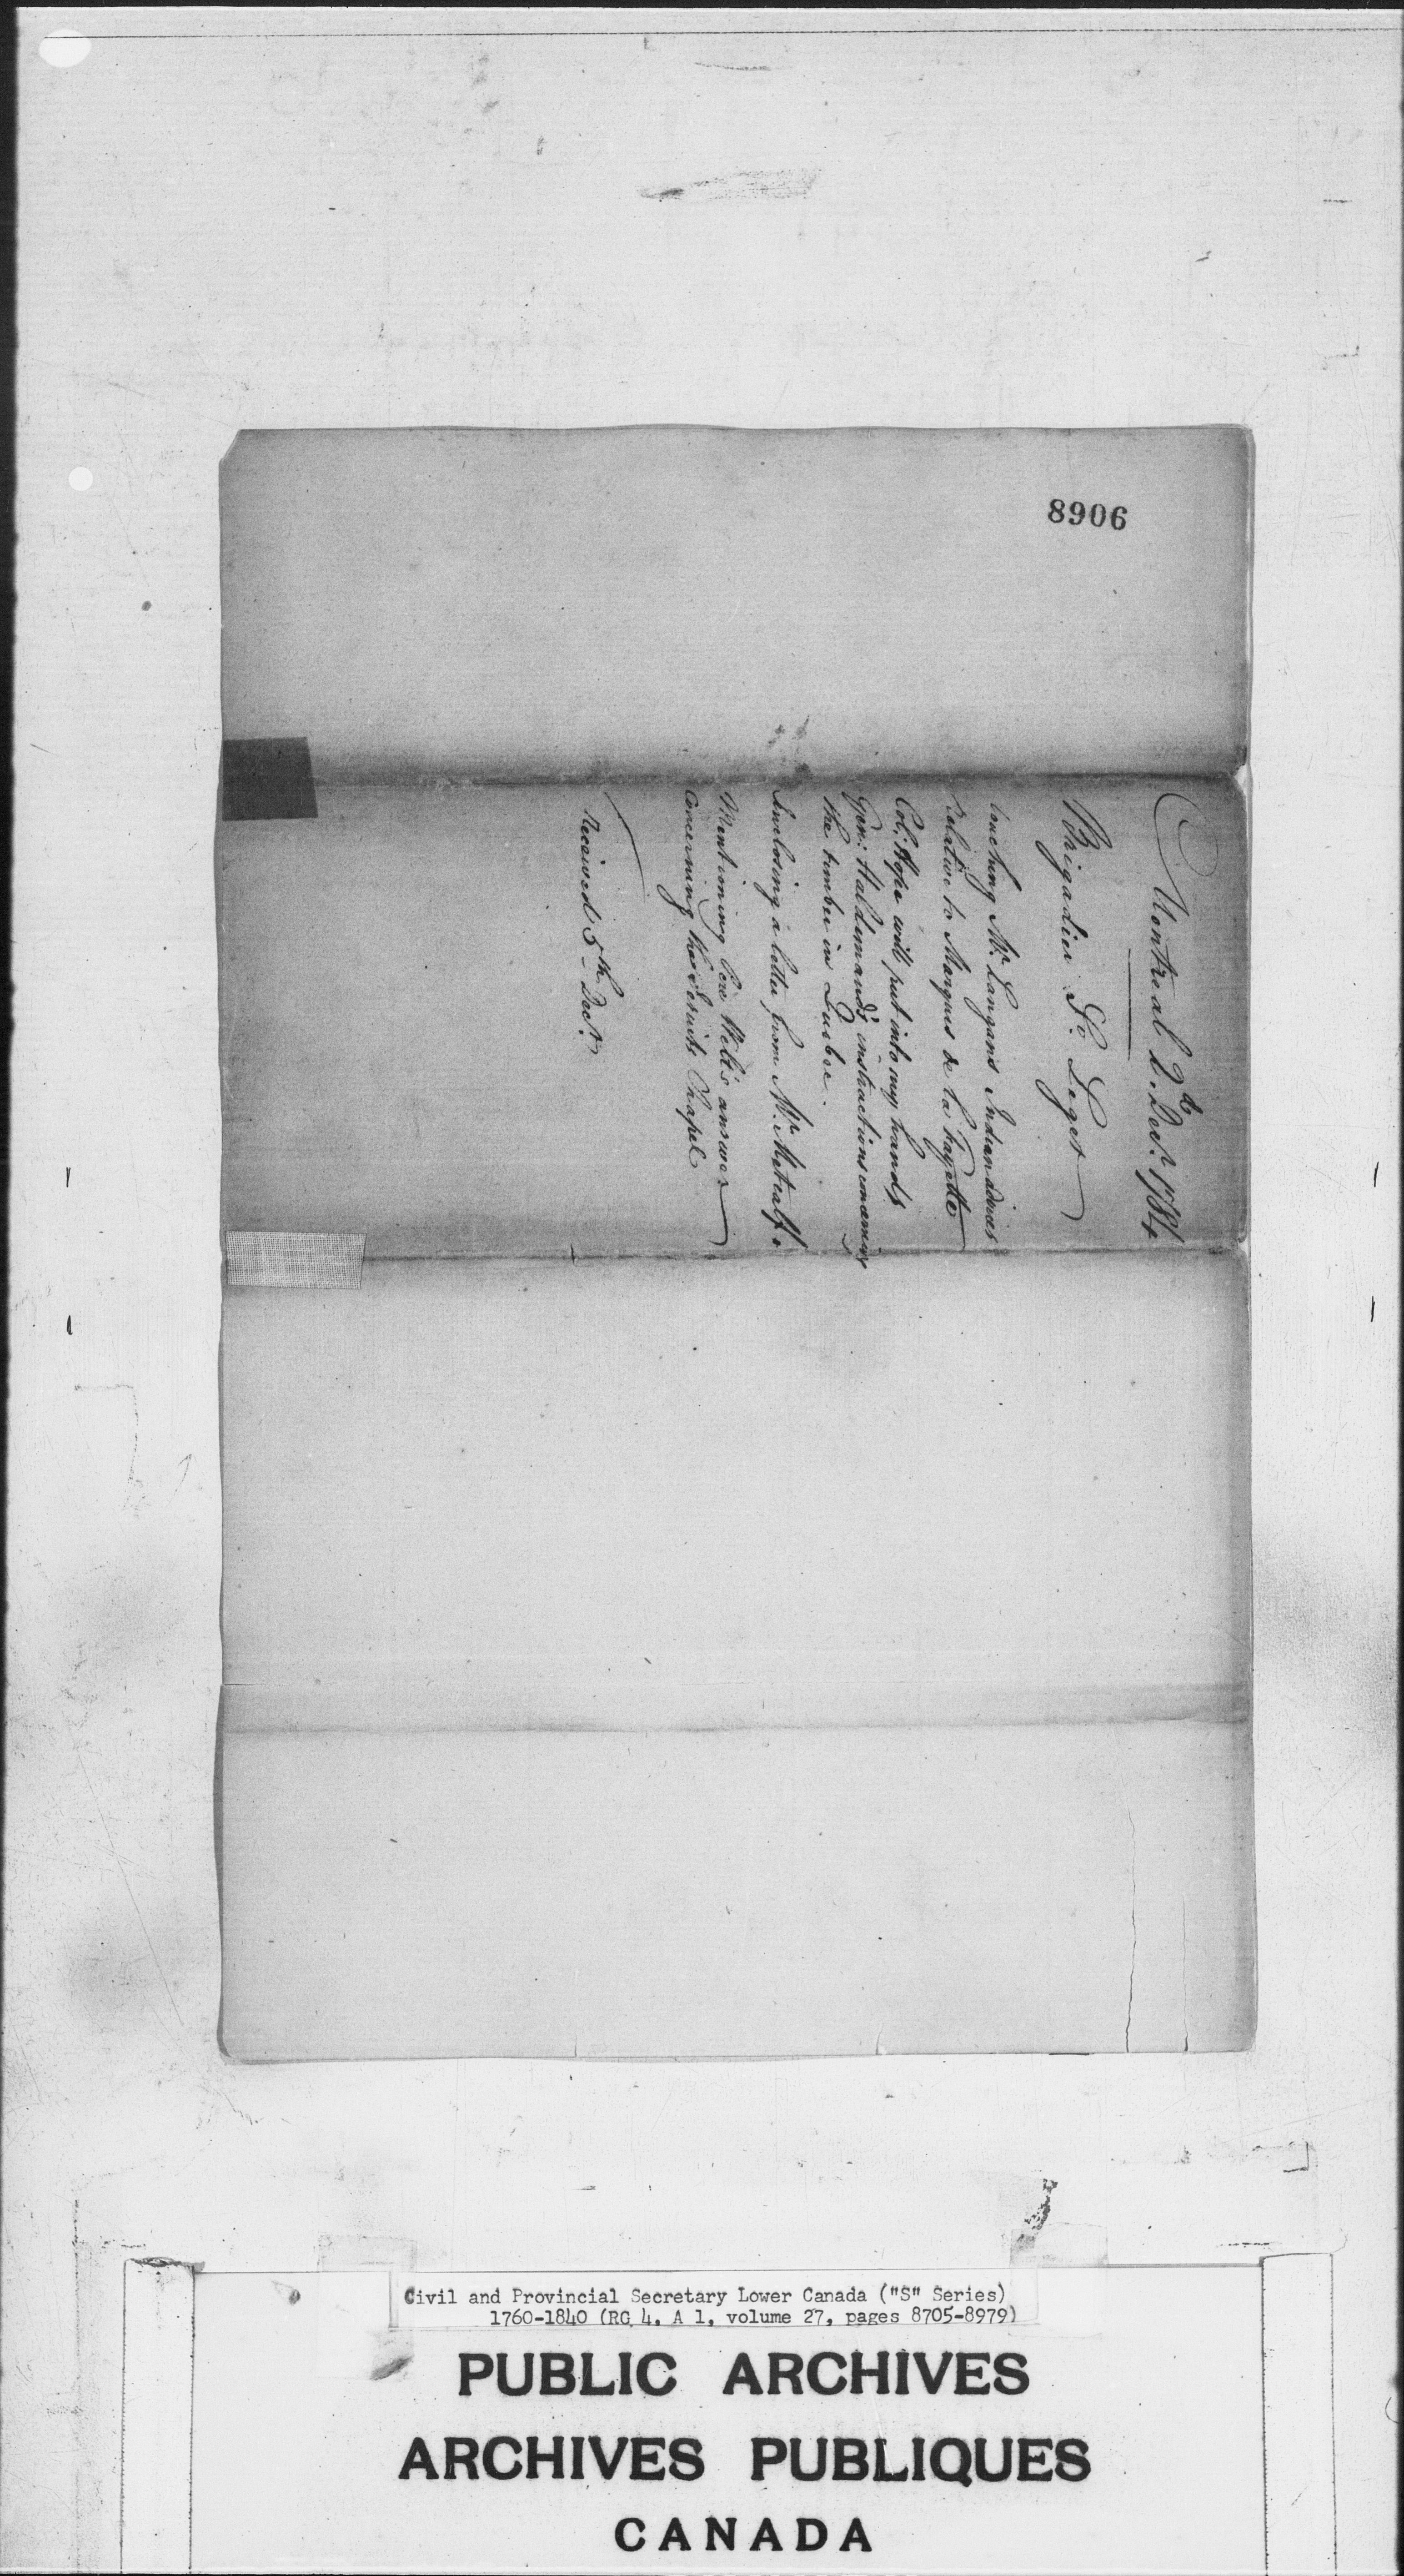 8906
Montreal 2d. Decr. 1784
Brigadier St. Leger
touching Mr. Langans Indian advices
relative to Marquis de la Fayette
Col: Hope will put into my hands
Gen: Haldimand's instructions concerning
the timber in Quebec.
Inclosing a letter from Mr. Metcalf.
Mentioning Pere Well's answer
concerning the Jesuits Chapel
Received 5th Decr.
Civil and Provincial Secretary Lower Canada ("S" Series)
1760-1840 (RG 4, A 1, volume 27, pages 8705-8979)
PUBLIC ARCHIVES
ARCHIVES PUBLIQUES
CANADA